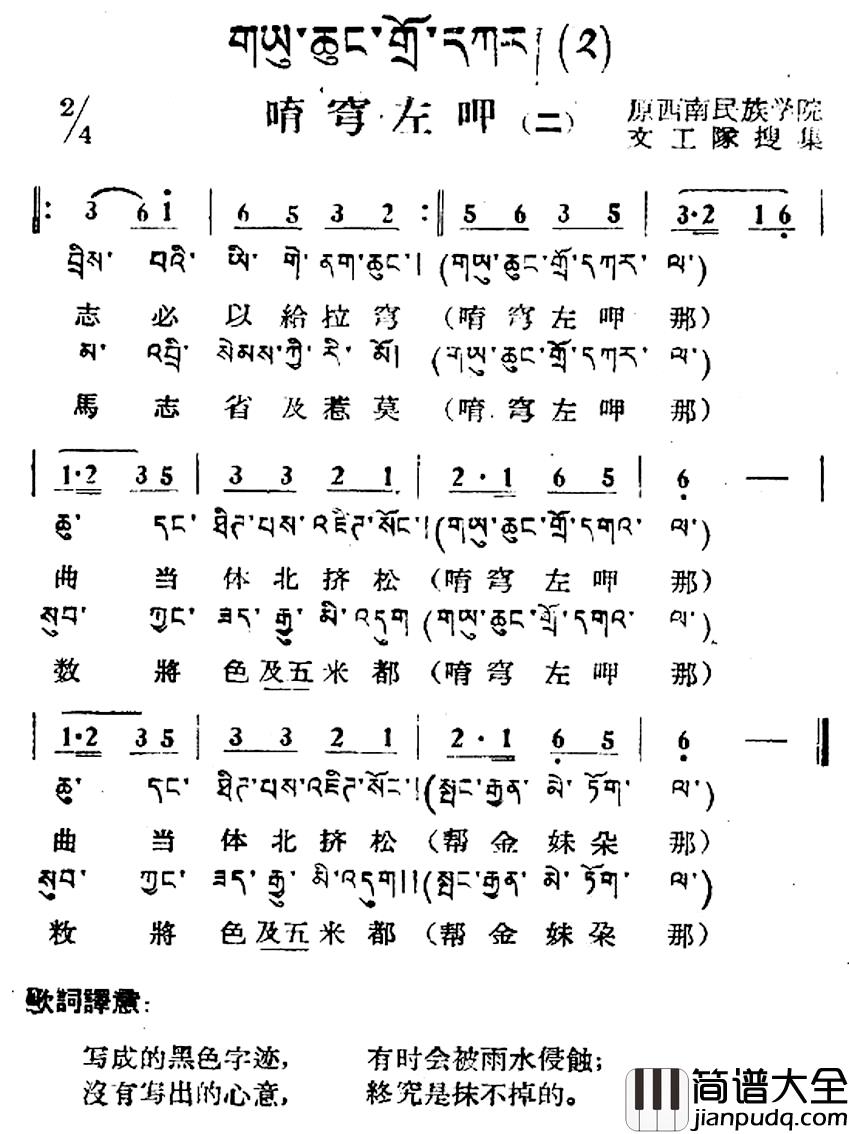 གཡུ་ཆུང་གྲོ་དཀར། (༢)
2/4
唷穹左呷（二）
原西南民族学院
文工隊搜集
3 6 i | 6 5 3 2 :‖ 5 6 3 5 | 3·2 1 6 |
བྲིས་ པའི་ ཡི་ གེ་ ནག་ཆུང་། (གཡུ་ཆུང་གྲོ་དཀར་ ལ་)
志必以給拉穹（唷穹左呷那）
མ་ འབྲི་ སེམས་ཀྱི་ རི་ མོ། (གཡུ་ཆུང་གྲོ་དཀར་ ལ་)
馬志省及惹莫（唷穹左呷那）
1·2 3 5 | 3 3 2 1 | 2·1 6 5 | 6 — |
ཆུ་ དང་ ཐིཊ་པས་འཇིཊ་སོང་། (གཡུ་ཆུང་གྲོ་དགའ་ ལ་)
曲当体北挤松（唷穹左呷那）
སུབ་ ཀྱང་ ཟད་ རྒྱུ་ མི་འདུག (གཡུ་ཆུང་གྲོ་དགའ་ ལ་)
数將色及五米都（唷穹左呷那）
1·2 3 5 | 3 3 2 1 | 2·1 6 5 | 6 — ‖
ཆུ་ དང་ ཐིཊ་པས་འཇིཊ་སོང་། (སྤང་རྒྱན་ མེ་ ཏོག་ ལ་)
曲当体北挤松（帮金妹朵那）
སུབ་ ཀྱང་ ཟད་ རྒྱུ་ མི་འདུག།། (སྤང་རྒྱན་ མེ་ ཏོག་ ལ་)
敉將色及五米都（帮金妹朶那）
歌詞譯意：
写成的黑色字迹， 有时会被雨水侵蝕；
沒有写出的心意， 終究是抹不掉的。
简谱大全
jianpudq.com